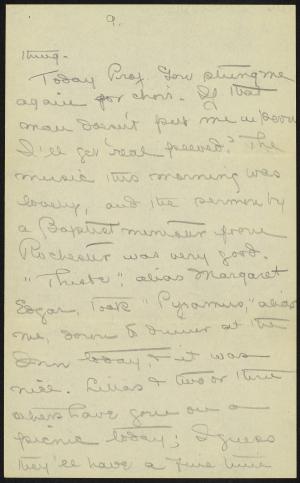 9.
thing.
Today Prof. Gow stung me
again for choir. If that
man doesn't put me up soon
I'll get "real peeved." The
music this morning was
lovely, and the sermon by
a Baptist minister from
Rochester was very good.
"Thisbe", alias Margaret
Edgar, took "Pyramus," alias
me, down to dinner at the
Inn today, & it was
nice. & two or three
others have gone on a
picnic today; I guess
they'll have a fine time